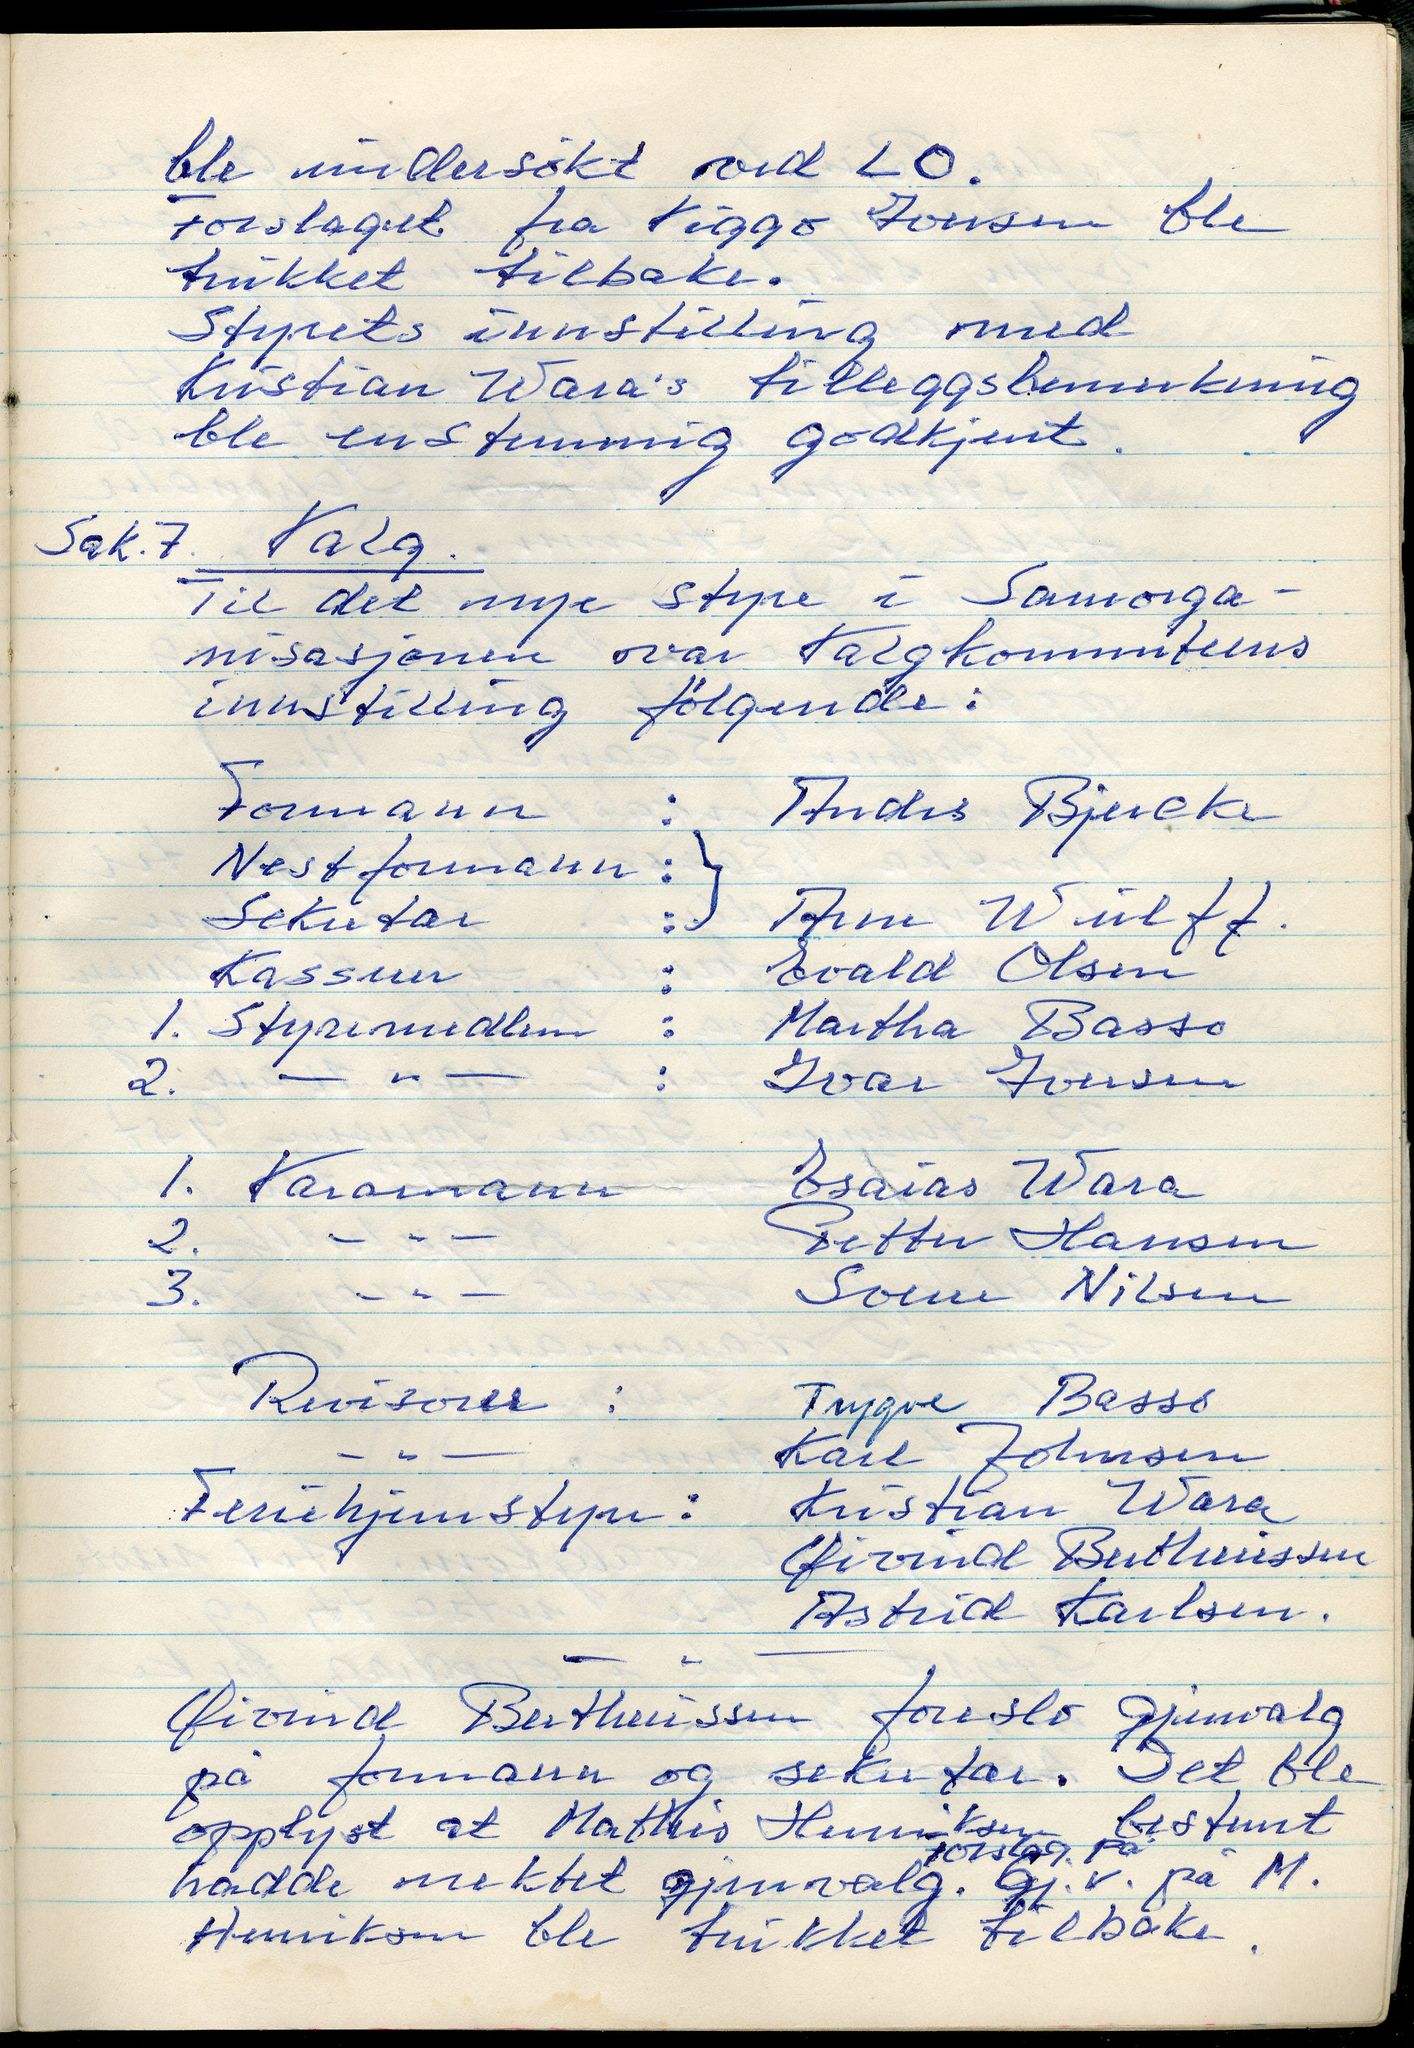 ble undersøkt ved LO.
Forslaget fra Viggo Iversen ble
trukket tilbake.
Styrets innstilling med
Kristian Wara's tilleggsbemerkning
ble enstemmig godkjent.
Sak. 7. Valg.
Til det nye styre i Samorga-
nisasjonen var Valgkommiteens
innstilling følgende:
Formann : Anders Bjercke
Nestformann : }
Sekretær : } Arne Wulff.
Kasserer : Evald Olsen
1. Styremedlem : Martha Basso
2. — " — : Ivar Iversen
1. Varamann Esaias Wara
2. - " - Petter Hansen
3. - " - Svenn Nilsen
Revisorer : Trygve Basso
- " - Karl Johnsen
Feriehjemstyre : Kristian Wara
Øivind Bertheussen
Astrid Karlsen.
— " —
Øivind Bertheussen foreslo gjenvalg
på formann og sekretær. Det ble
opplyst at Mathis Henriksen bestemt
hadde nektet gjenvalg. Forslag. på Gj.v. på M.
Henriksen ble trukket tilbake.